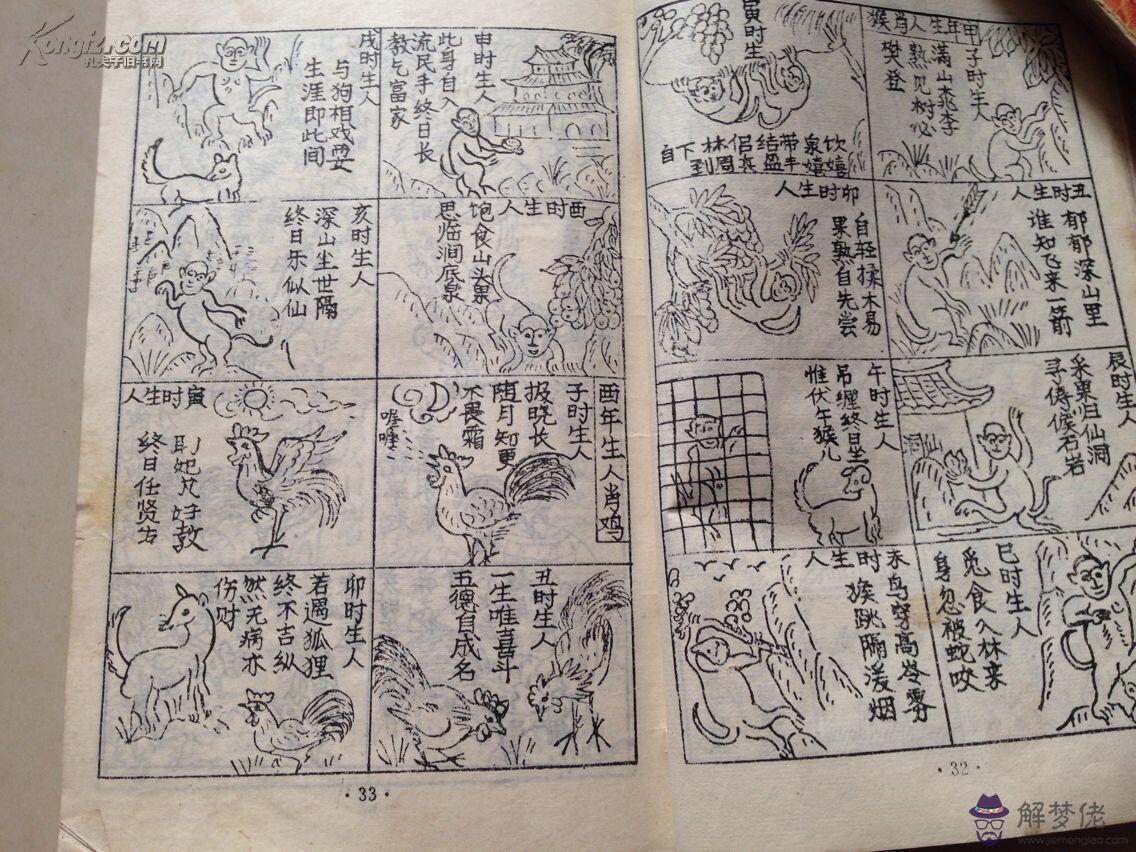 申年生人肖猴
子时生人
满山桃李
熟见树必
樊登
寅时生
饮泉带结侣林下自
嬉嬉丰盈共周到
丑时生人
郁郁深山里
谁知飞来一箭
卯时生人
自轻揉木易
果熟自先尝
辰时生人
采果归仙洞
寻俦候石岩
午时生人
吊缠终日坐
惟伏午猴儿
巳时生人
觅食入林来
身忽被蛇咬
未时生人
鸟穿高岺雾
猴跳隔湲烟
·32·
申时生人
此身自入
流民手终日长
教乞富家
戌时生人
与狗相戏耍
生涯即此间
酉时生人
饱食山头果
思临涧底泉
亥时生人
深山尘世隔
终日乐似仙
酉年生人肖鸡
子时生人
报晓长
随月知更
不畏霜
喔喔
寅时生人
终日任贤
丑时生人
一生唯喜斗
五德自成名
卯时生人
若遇狐狸
终不吉纵
然无病亦
伤财
·33·
Kongfz.com
孔夫子旧书网
解梦佬
www.jiemenglao.com